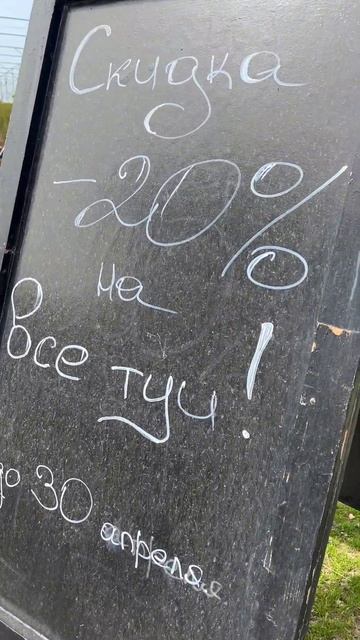 Скидка
-20%
на
все туи!
до 30 апреля